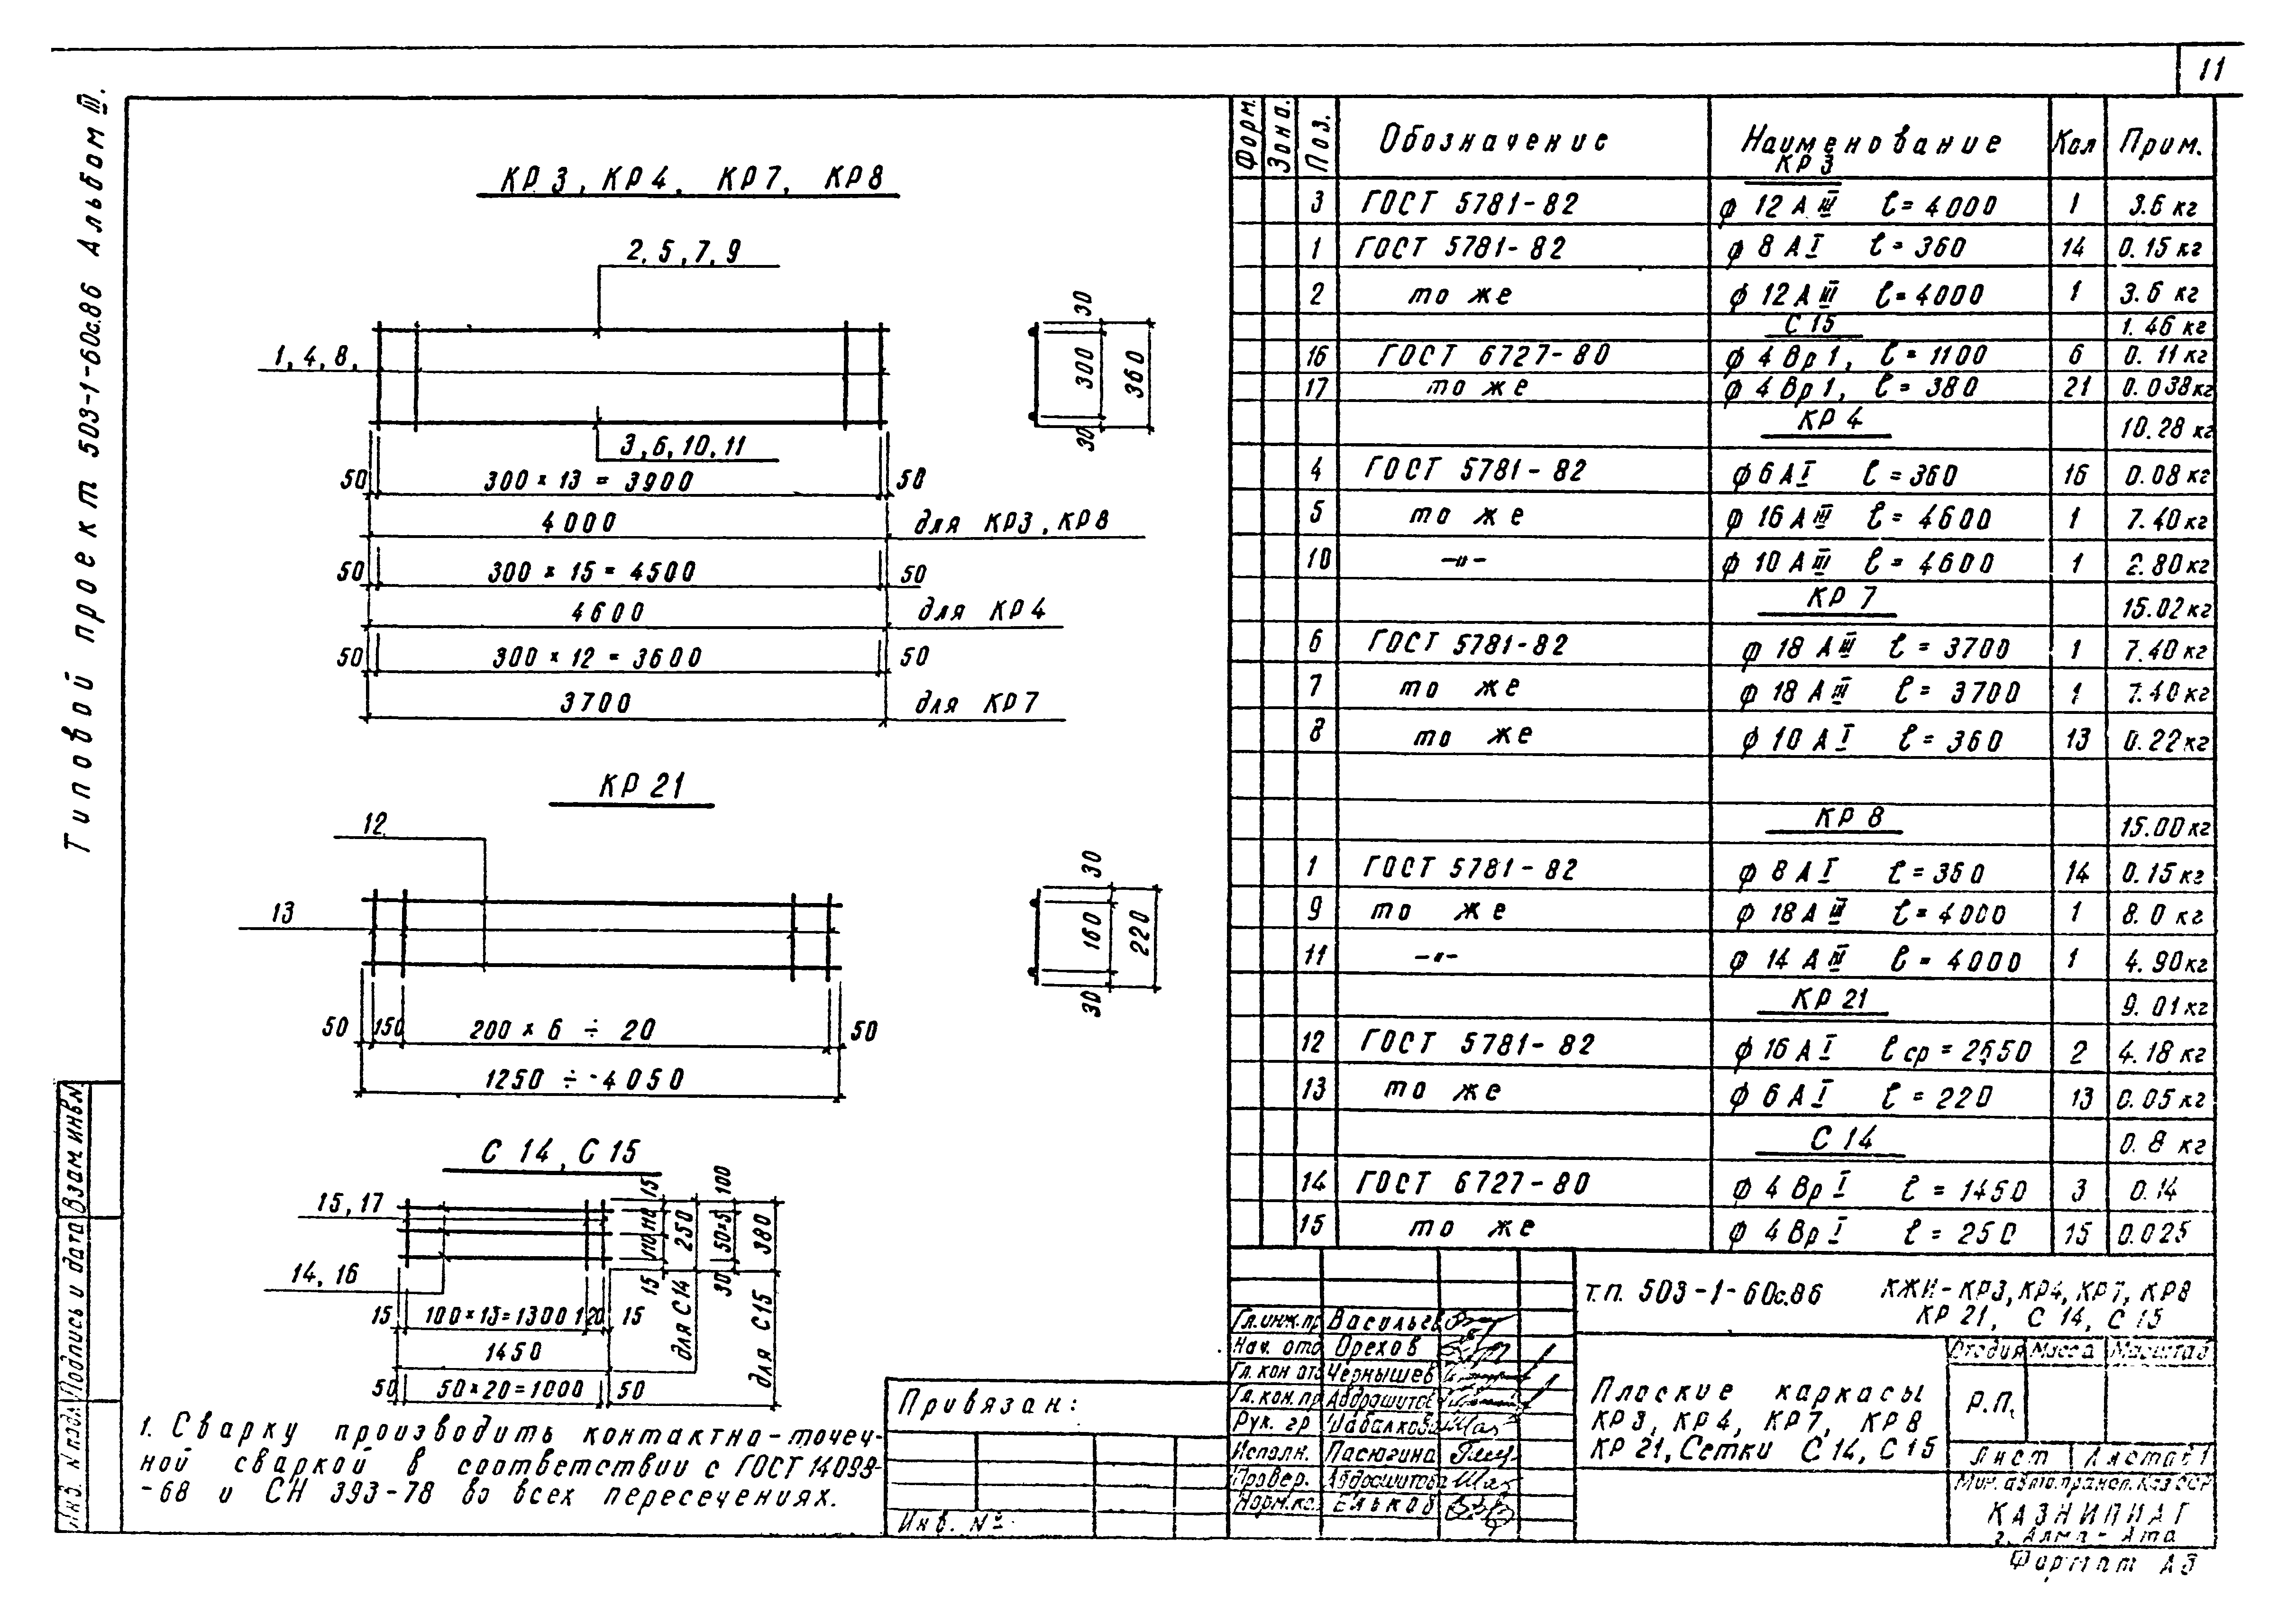 11
Типовой проект 503-1-60с.86 Альбом III.
КР3, КР4, КР7, КР8
2, 5, 7, 9
1, 4, 8,
3, 6, 10, 11
30
300
30
360
50 300 × 13 = 3900 50
4000 для КР3, КР8
50 300 × 15 = 4500 50
4600 для КР4
50 300 × 12 = 3600 50
3700 для КР7
КР 21
12
13
30
160
30
220
50 150 200 × 6 ÷ 20 50
1250 ÷ 4050
С 14, С 15
15, 17
14, 16
15
110
110
15
250
для С14
100
50×5
30
380
для С15
15 100×13=1300 120 15
1450
50 50×20=1000 50
1. Сварку производить контактно-точеч-
ной сваркой в соответствии с ГОСТ 14098-
-68 и СН 393-78 во всех пересечениях.
Форм. Зона. Поз. Обозначение Наименование Кол Прим.
КР 3
3 ГОСТ 5781-82 ϕ 12 А III ℓ=4000 1 3.6 кг
1 ГОСТ 5781-82 ϕ 8 А I ℓ=360 14 0.15 кг
2 то же ϕ 12 А III ℓ=4000 1 3.6 кг
С 15 1.46 кг
16 ГОСТ 6727-80 ϕ 4 Вр 1, ℓ=1100 6 0.11 кг
17 то же ϕ 4 Вр 1, ℓ=380 21 0.038 кг
КР 4 10.28 кг
4 ГОСТ 5781-82 ϕ 6 А I ℓ=360 16 0.08 кг
5 то же ϕ 16 А III ℓ=4600 1 7.40 кг
10 -"- ϕ 10 А III ℓ=4600 1 2.80 кг
КР 7 15.02 кг
6 ГОСТ 5781-82 ϕ 18 А III ℓ=3700 1 7.40 кг
7 то же ϕ 18 А III ℓ=3700 1 7.40 кг
8 то же ϕ 10 А I ℓ=360 13 0.22 кг
КР 8 15.00 кг
1 ГОСТ 5781-82 ϕ 8 А I ℓ=360 14 0.15 кг
9 то же ϕ 18 А III ℓ=4000 1 8.0 кг
11 -"- ϕ 14 А III ℓ=4000 1 4.90 кг
КР 21 9.01 кг
12 ГОСТ 5781-82 ϕ 16 А I ℓср=2650 2 4.18 кг
13 то же ϕ 6 А I ℓ=220 13 0.05 кг
С 14 0.8 кг
14 ГОСТ 6727-80 ϕ 4 Вр I ℓ=1450 3 0.14
15 то же ϕ 4 Вр I ℓ=250 15 0.025
т.п. 503-1-60с.86 КЖИ-КР3, КР4, КР7, КР8
КР 21, С 14, С 15
Гл.инж.пр Васильев
Нач. отд Орехов
Гл. кон отд Чернышев
Гл. кон. пр Авдрашитов
Рук. гр Шабалкова
Исполн. Пасюгина
Провер. Авдрашитова
Норм.ко. Еньков
Плоские каркасы
КР 3, КР 4, КР 7, КР 8
КР 21, Сетки С 14, С 15
Стадия Масса Масштаб
Р.П.
Лист Листов 1
Мин. автотрансп. КазССР
КАЗНИПИАТ
г. Алма-Ата
Формат А3
Привязан:
Инв. №
Взам. инв. №
Подпись и дата
Инв. № подл.